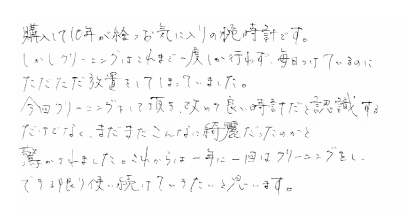 購入して10年が経つお気に入りの腕時計です。
しかしクリーニングはこれまで一度しか行わず、毎日つけているのに
ただただ放置をしてしまっていました。
今回クリーニングをして頂き、改めて良い時計だと認識する
だけでなく、まだまだこんなに綺麗だったのかと
驚かされました。これからは一年に一回はクリーニングをし、
できる限り使い続けていきたいと思います。